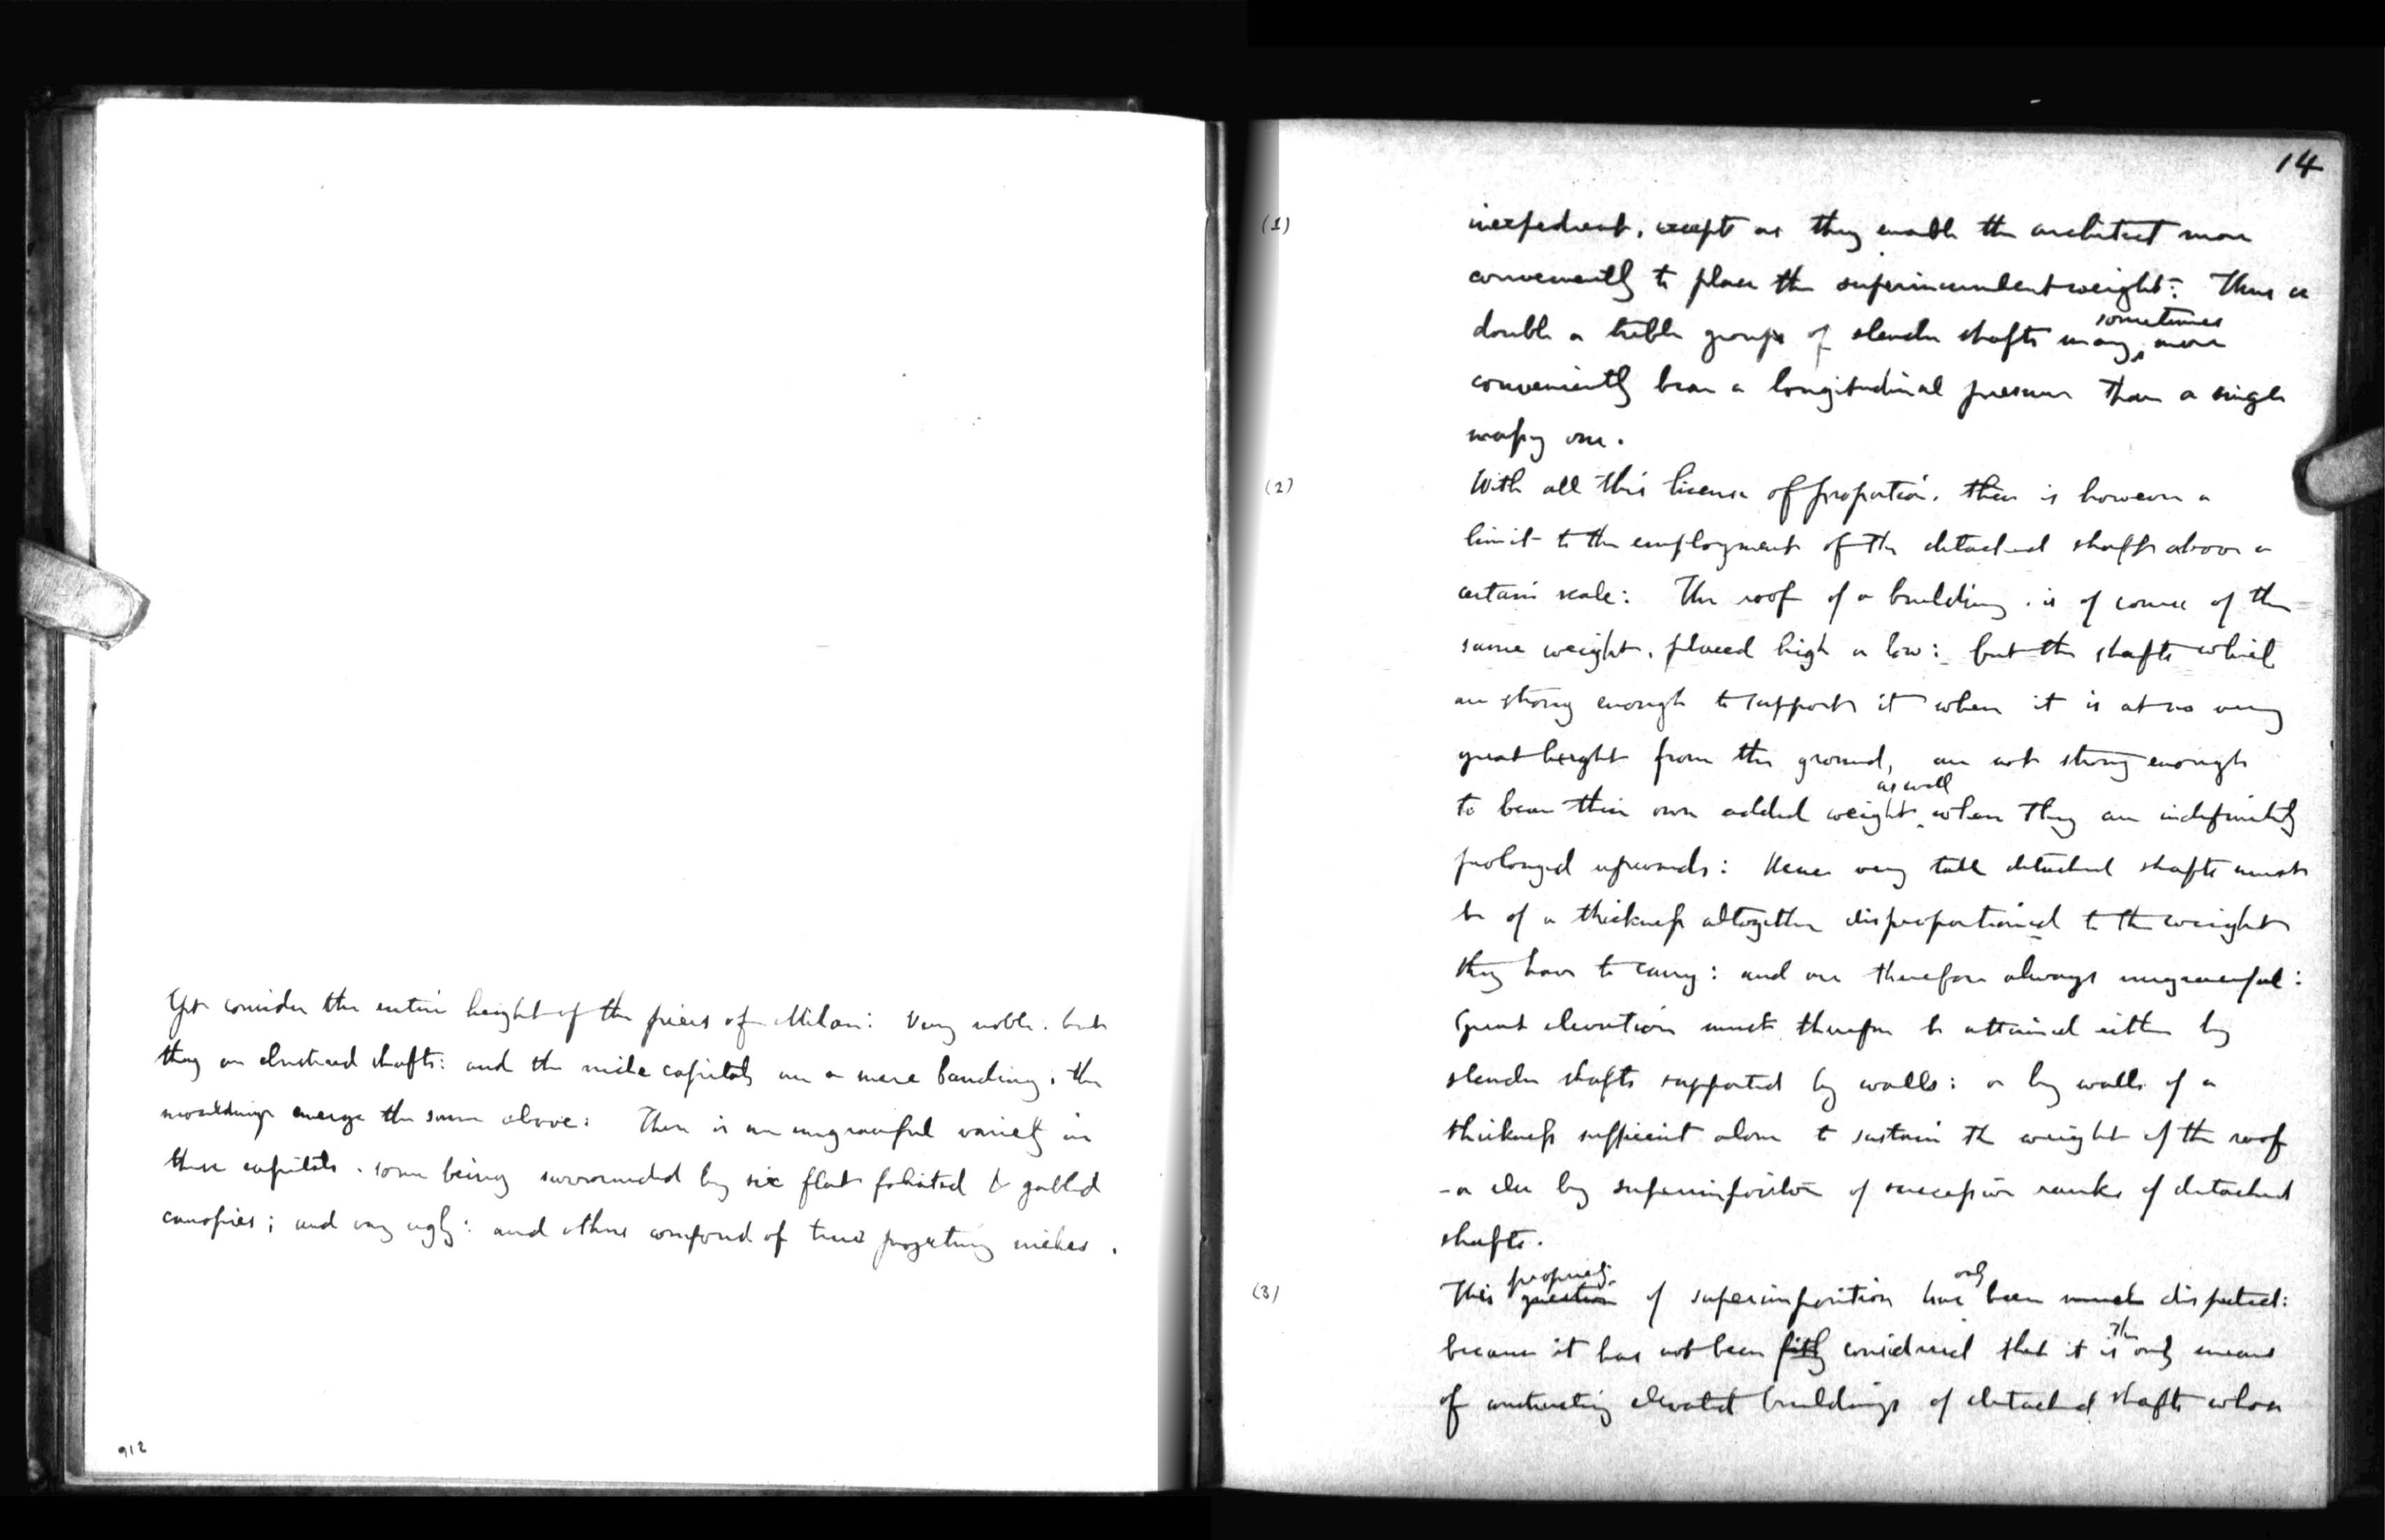 Yet consider the entire height of the piers of Milan: Very noble. but
they are clustered shafts: and the niche capitals are a mere banding, the
mouldings emerge the same above: There is an ungraceful variety in
these capitals. some being surrounded by six flat foliated & gabled
canopies; and very ugly: and others composed of true projecting niches.
912
14
(1)
inexpedient, except as they enable the architect more
conveniently to place the superincumbent weight: Thus a
sometimes
double or treble group of slender shafts may more
conveniently bear a longitudinal pressure than a single
massy one.
(2)
With all this license of proportion. there is however a
limit to the employment of the detached shaft above a
certain scale: The roof of a building. is of course of the
same weight, placed high or low: but the shafts which
are strong enough to support it when it is at no very
great height from the ground, are not strong enough
as well
to bear their own added weight when they are indefinitely
prolonged upwards: Hence very tall detached shafts must
be of a thickness altogether disproportioned to the weight
they have to carry: and are therefore always ungraceful:
Great elevation must therefore be attained either by
slender shafts supported by walls: or by walls of a
thickness sufficient alone to sustain the weight of the roof
- or else by superimposition of successive ranks of detached
shafts.
(3)
propriety only
This question of superimposition has been much disputed:
the
because it has not been fitly considered that it is only means
of constructing elevated buildings of detached shafts when